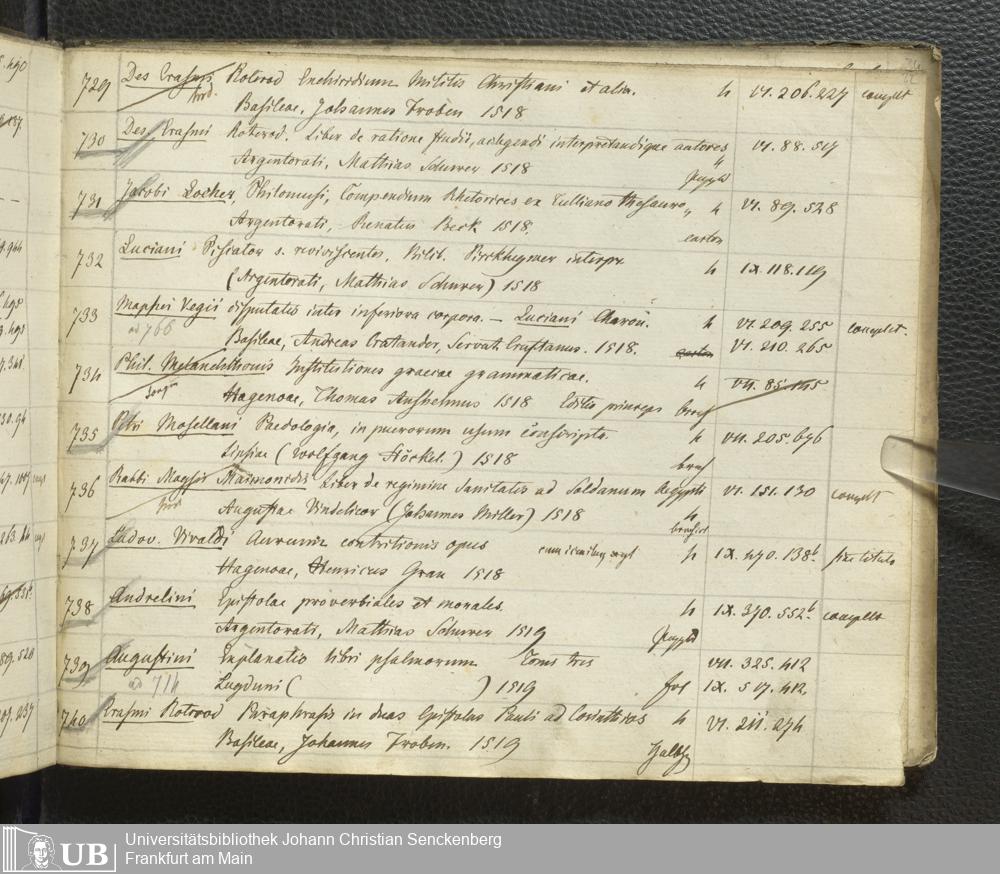 729 Des. Erasmi Roterod Enchiridium militis Christiani et alia. h VI. 206. 227 complet
Basileae, Johannes Froben 1518
730 Des. Erasmi Roterod. Liber de ratione studii, ac legendi interpretandique autores VI. 88. 517
Argentorati, Mathias Schurer 1518
731 Jakobi Locher, Philomusi, Compendium Rhetorices ex Tulliano thesauro h VI. 89. 528
Argentorati, Renatus Beck 1518. carton
732 Luciani Piscator s. reviviscentes. Bilib. Pirckheymer interpr h IX. 118. 119
(Argentorati, Mathias Schurer) 1518
733 Maphei Vegii disputatio inter inferiora corpora. – Luciani Charon. h VI. 209. 255 complet.
ad 766 Basileae, Andreas Cratander, Servat. Cruftanus. 1518. carton VI. 210. 265
734 Phil. Melanchthonis Institutiones graecae grammaticae. h VII. 85. 145
Hagenoae, Thomas Anshelmus 1518 Editio princeps brosch
735 Petri Mosellani Paedologia, in puerorum usum conscripta h VII. 205. 696
Lipsiae (Wolfgang Stöckel.) 1518 brosch
736 Rabbi Moysis Maimonidis Liber de regimine sanitatis ad Soldanum Aegypti VI. 151. 130 complet
Augustae Vindelicor (Johannes Miller) 1518 h
737 Ludov. Vivaldi Aureum contritionis opus h IX. 470. 138b sine titulo
Hagenoae, Henricus Gran 1518
738 Andrelini Epistolae proverbiales et morales. h IX. 370. 552b. complet
Argentorati, Mathias Schurer 1519
739 Augustini Explanatio libri psalmorum Tomi tres VII. 325. 412
ad 714 Lugduni ( ) 1519 fol IX. 507. 412.
740 Erasmi Roterod Paraphrasis in duas Epistolas Pauli ad Corinthios h VI. 211. 274
Basileae, Johannes Froben. 1519 Halbfz
UB
Universitätsbibliothek Johann Christian Senckenberg
Frankfurt am Main